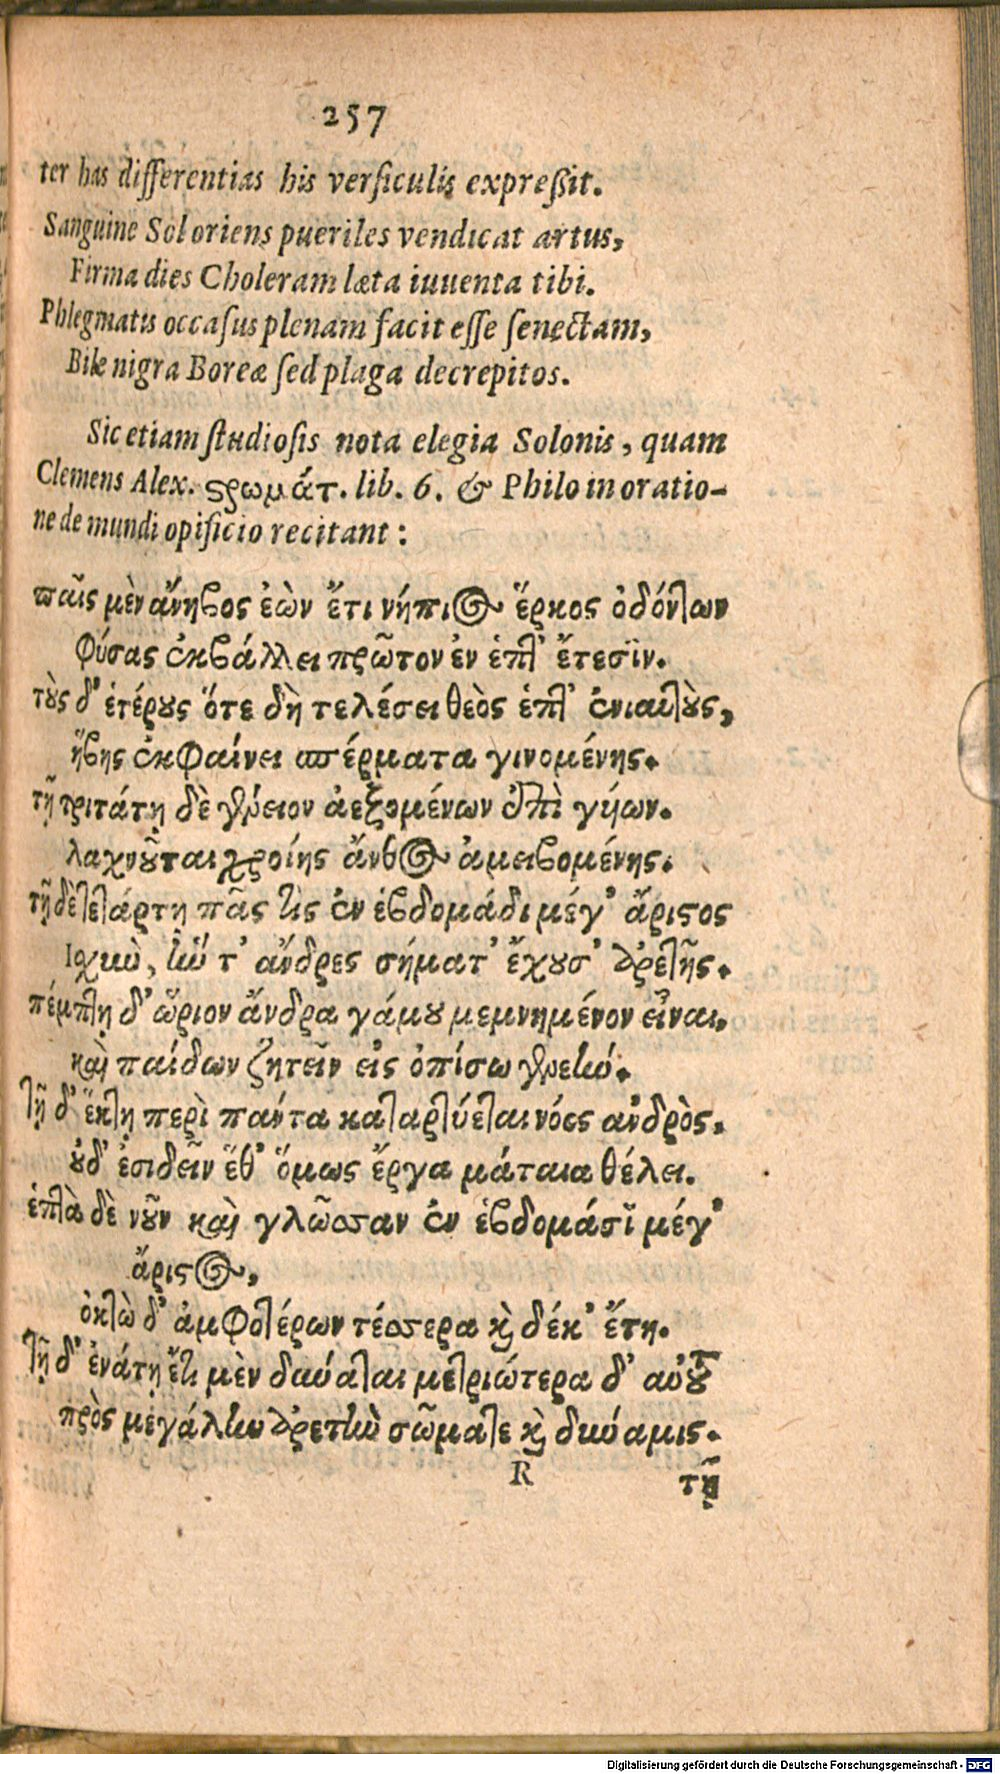 257
ter has differentias his versiculis expreßit.
Sanguine Sol oriens pueriles vendicat artus,
Firma dies Choleram læta iuuenta tibi.
Phlegmatis occasus plenam facit esse senectam,
Bile nigra Boreæ sed plaga decrepitos.
Sic etiam studiosis nota elegia Solonis, quam
Clemens Alex. ςρωμάτ. lib. 6. & Philo in oratio-
ne de mundi opificio recitant:
παῖς μὲν ἄνηβος ἐὼν ἔτι νήπιος ἕρκος ὀδόντων
φύσας ἐκβάλλει πρῶτον ἐν ἑπτ' ἔτεσιν.
τοὺς δ' ἑτέρους ὅτε δὴ τελέσει θεὸς ἑπτ' ἐνιαυτοὺς,
ἥβης ἐκφαίνει σπέρματα γινομένης.
τῇ τριτάτῃ δὲ γένειον ἀεξομένων ἐπὶ γύων.
λαχνοῦται χροίης ἄνθος ἀμειβομένης.
τῇ δὲ τετάρτῃ πᾶς τις ἐν ἑβδομάδι μέγ' ἄριςος
Ιοχὺν, ἥν τ' ἄνδρες σήματ' ἔχουσ' ἀρετῆς.
πέμπτῃ δ' ὥριον ἄνδρα γάμου μεμνημένον εἶναι,
καὶ παίδων ζητεῖν εἰς ὀπίσω γενεήν.
τῇ δ' ἕκτῃ περὶ παντα καταρτύεται νόες ανδρὸς,
οὐδ' ἐσιδεῖν ἔθ' ὅμως ἔργα μάταια θέλει.
ἑπτὰ δὲ νοῦν καὶ γλῶσσαν ἐν ἑβδομάσι μέγ'
ἄριςος,
ὀκτὼ δ' ἀμφοτέρων τέσσερα καὶ δέκ' ἔτη.
τῇ δ' ἐνάτῃ ἔτι μὲν δύναται μετριώτερα δ' αὐτοῦ
πρὸς μεγάλην ἀρετὴν σῶμα τε καὶ δύναμις.
R
τῇ
Digitalisierung gefördert durch die Deutsche Forschungsgemeinschaft - DFG